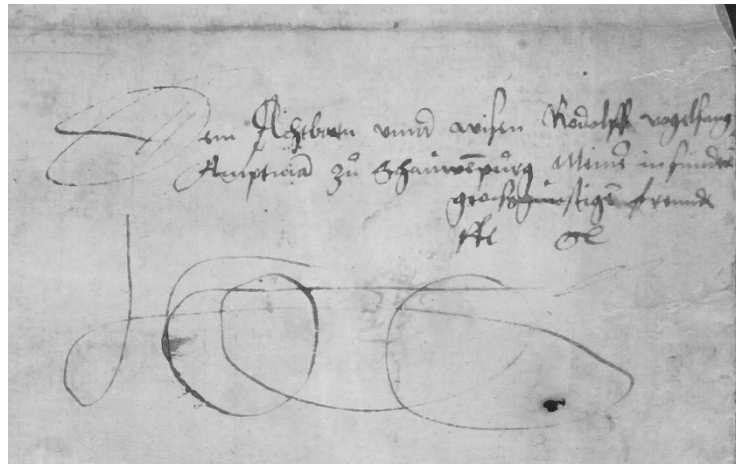 Dem Achtbarn unnd wisen Rodolff vogelsang
Amptman zů Schauwenpurg Meins insunder
großgünstigen freunde